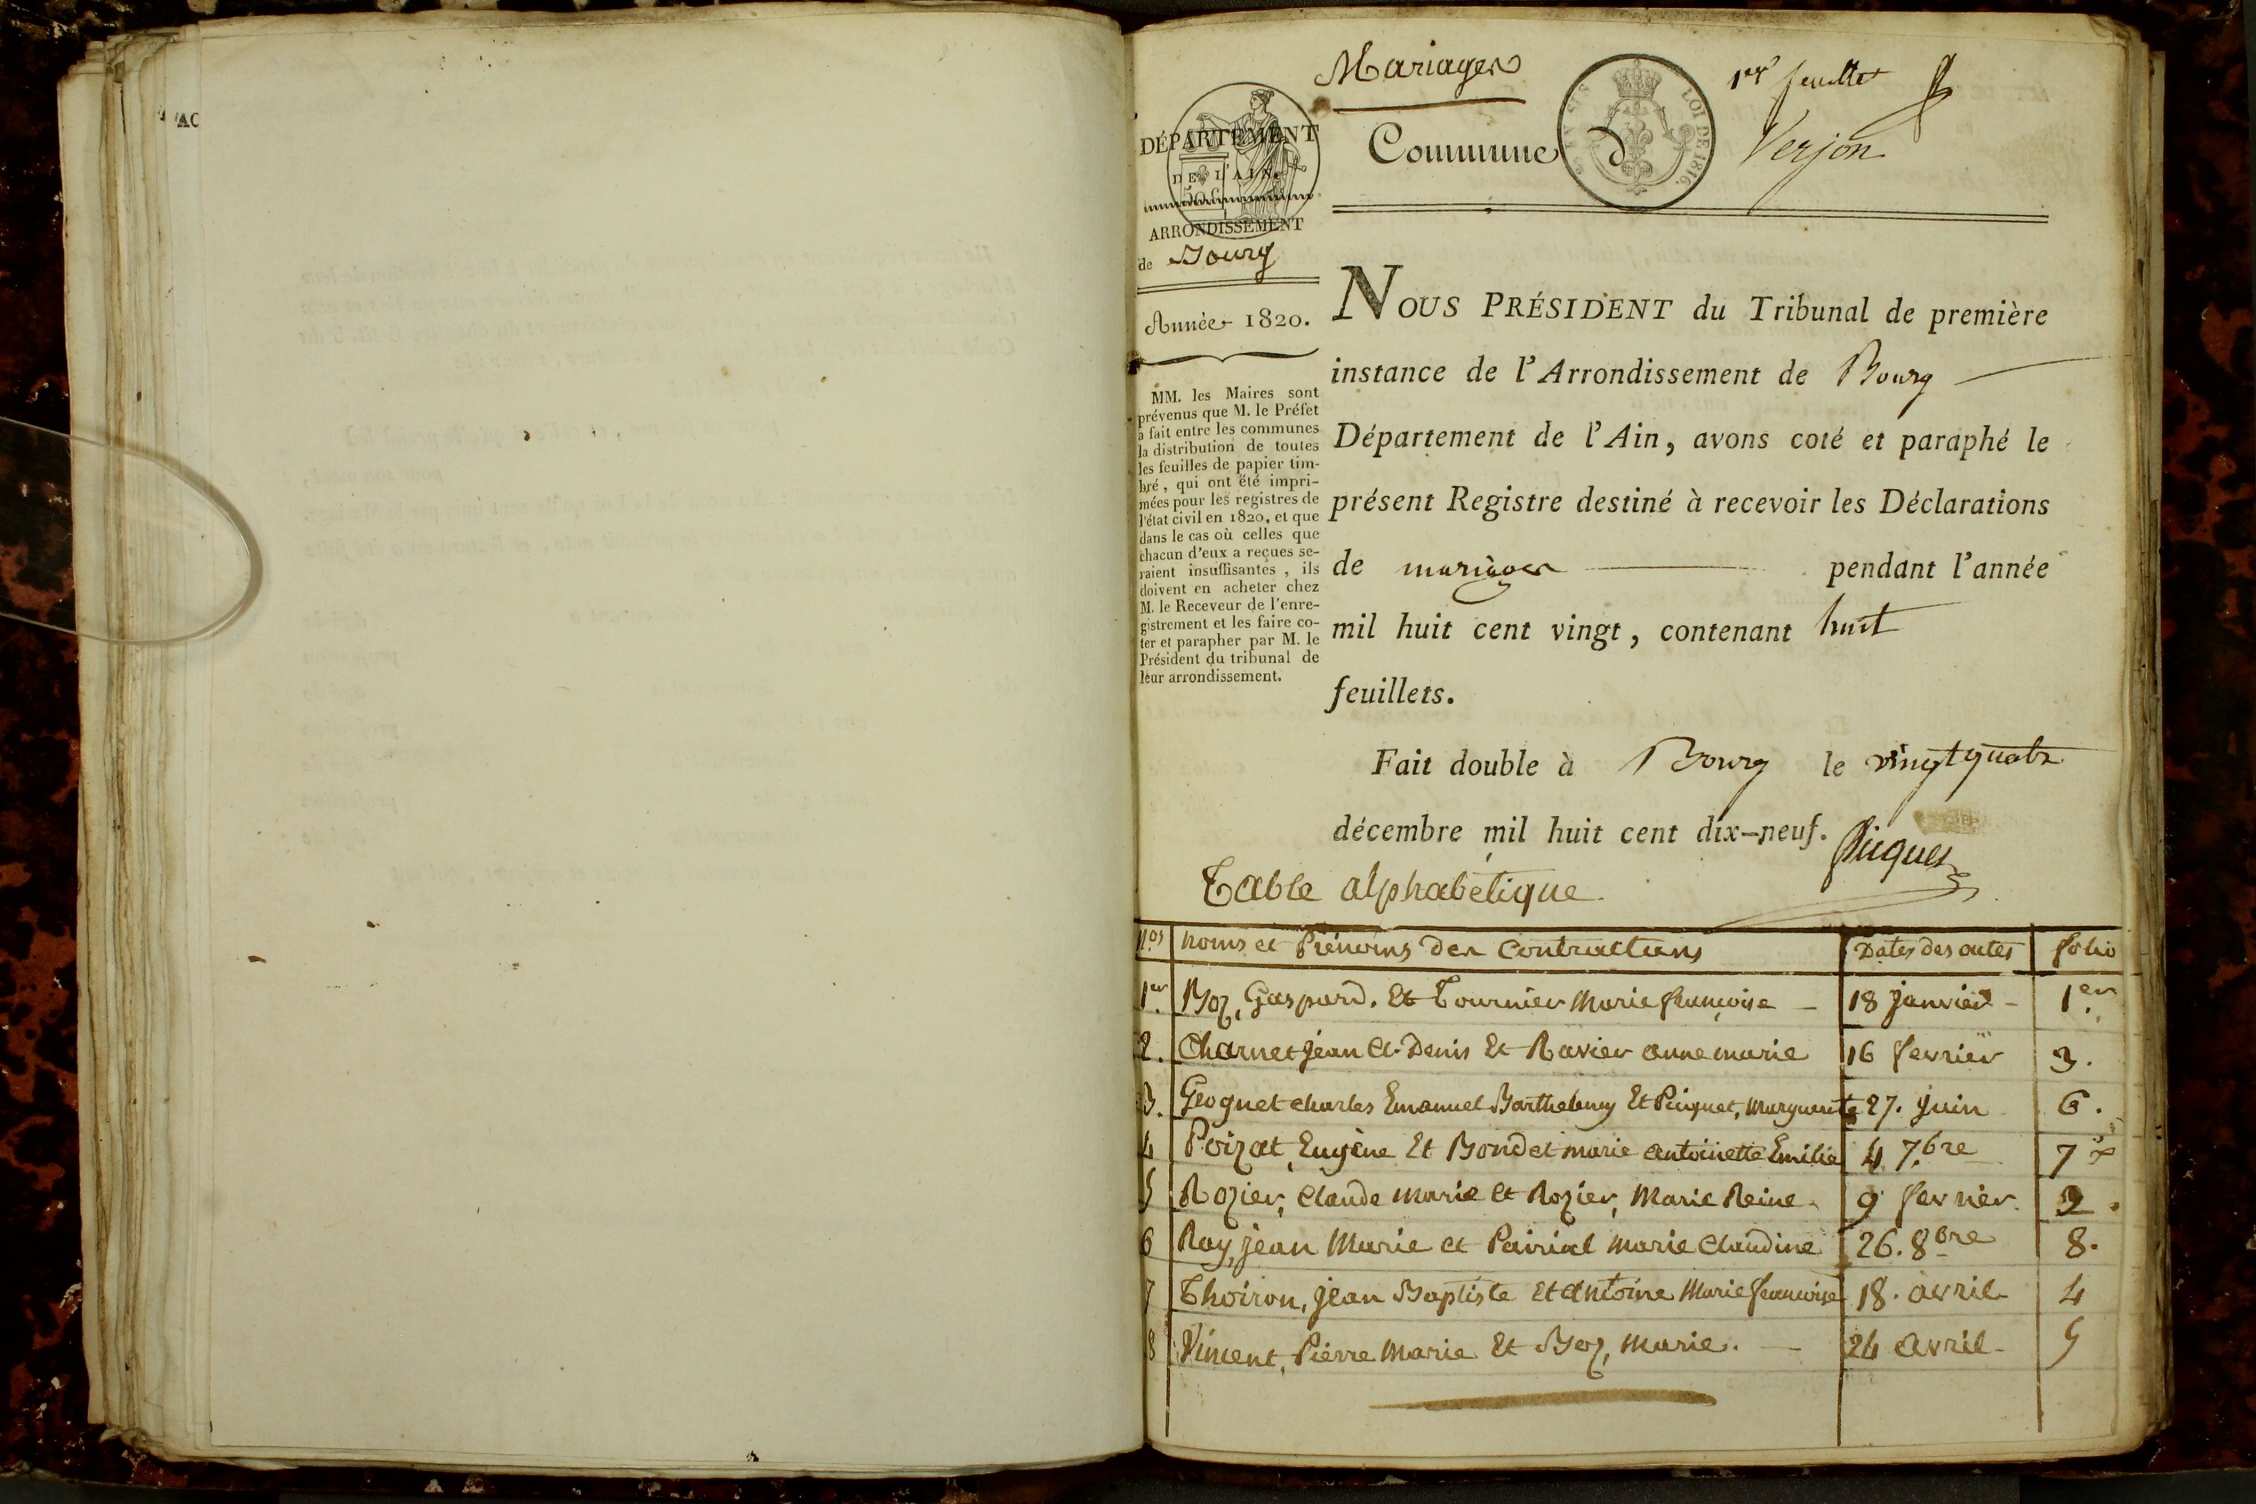 AC
Mariages
1er feuillet
DÉPARTEMENT
DE L'AIN.
50 c
ARRONDISSEMENT
de Bourg
Année 1820.
LOI DE 1816.
Commune de Verjon
MM. les Maires sont
prévenus que M. le Préfet
a fait entre les communes
la distribution de toutes
les feuilles de papier tim-
bré, qui ont été impri-
mées pour les registres de
l'état civil en 1820, et que
dans le cas où celles que
chacun d'eux a reçues se-
raient insuffisantes, ils
doivent en acheter chez
M. le Receveur de l'enre-
gistrement et les faire co-
ter et parapher par M. le
Président du tribunal de
leur arrondissement.
NOUS PRÉSIDENT du Tribunal de première
instance de l'Arrondissement de Bourg
Département de l'Ain, avons coté et paraphé le
présent Registre destiné à recevoir les Déclarations
de mariages pendant l'année
mil huit cent vingt, contenant huit
feuillets.
Fait double à Bourg le vingt quatre
décembre mil huit cent dix-neuf.
Picquet
Table alphabétique
Nos noms et Prénoms des Contractans Dates des actes folio
1er. Boz, Gaspard. Et Tournier Marie françoise — 18 janvier - 1er.
2. Charnet jean Cl. Denis Et Ravier anne marie 16 fevrier 3.
3. Geognet charles Emanuel Barthelemy Et Picquet, Marguerite 27. juin 6.
4 Poizat, Eugène Et Bondet marie antoinette Emilie 4 7.bre 7
5 Rozier, Claude Marie et Rozier, Marie Reine. 9 fevrier. 2.
6 Ray, jean Marie et Pairial marie Claudine 26. 8bre 8.
7 Thoiron, jean Baptiste et Antoine Marie francoise 18. avril 4
8 Vincent, Pierre Marie Et Boz, Marie. — 24 avril - 5